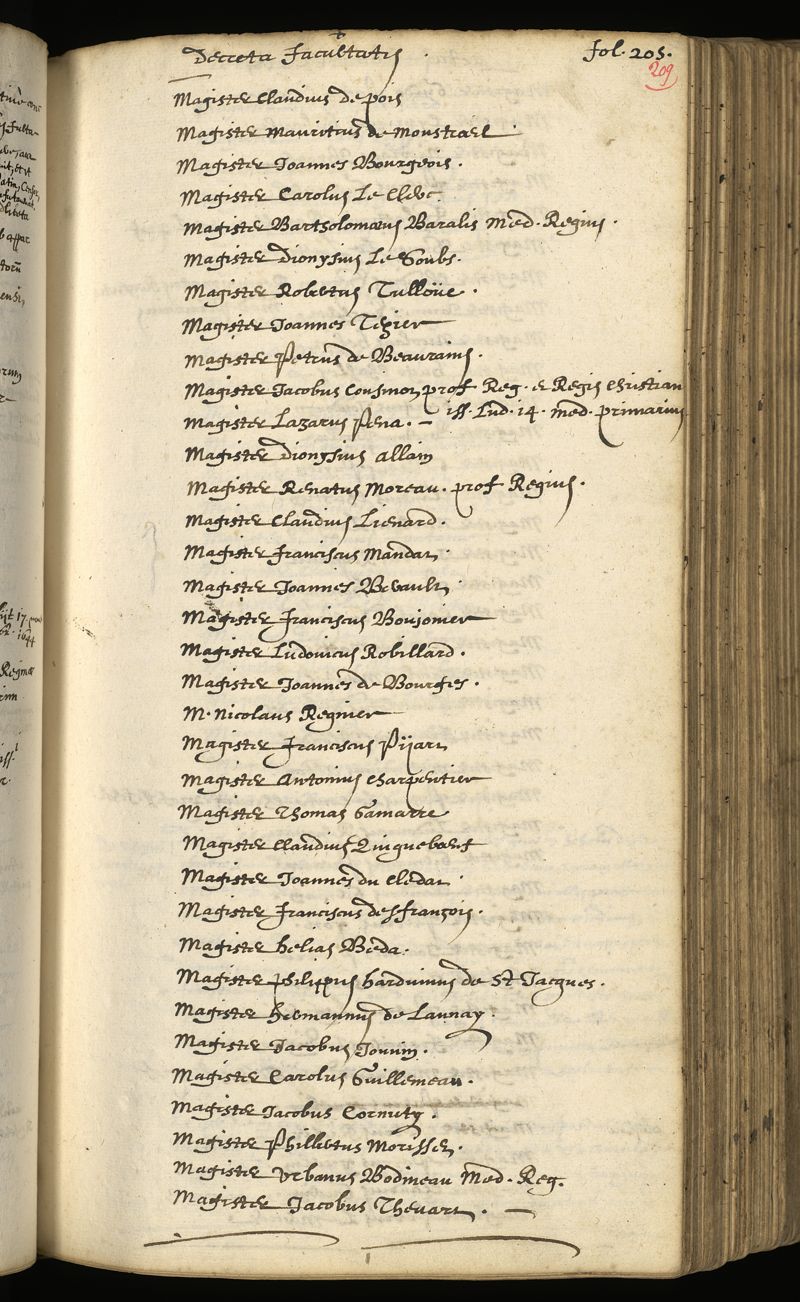 Decreta Facultatis . fol. 205.
209
Magister Claudius de pois
Magister Mauritius de Monstrœil .
Magister Joannes Bourgeois .
Magister Carolus Le Clerc.
Magister Bartholomæus Baralis Med. Regius .
Magister Dionysius Le Soubs.
Magister Robertus Tulloüe .
Magister Joannes Texier
Magister Petrus de Beaurains .
Magister Jacobus Cousinot prof Reg. & Regis Christian
iss. Lud. 14. med. primarius
Magister Lazarus Pena . –
Magister Dionysius allain
Magister Renatus Moreau . prof Regius .
Magister Claudius Lienard .
Magister franciscus Mandat .
Magister Joannes Bevault .
Magister franciscus Boujonier
Magister Ludovicus Robillard .
Magister Joannes de Bourges .
M. Nicolaus Regnier
Magister franciscus Pijart
Magister Antonius Charpentier
Magister Thomas Gamarre
Magister Claudius Quiquebœuf
Magister Joannes du Cledat .
Magister franciscus desfrançois .
Magister helias Beda .
Magister philippus harduinus de St Jacques .
Magister hermannus de Launay .
Magister Jacobus Jouvin .
Magister Carolus Guillemeau .
Magister Jacobus Cornuty .
Magister Philbertus Morisset .
Magister Urbanus Bodineau Med. Reg.
Magister Jacobus Thevart . –